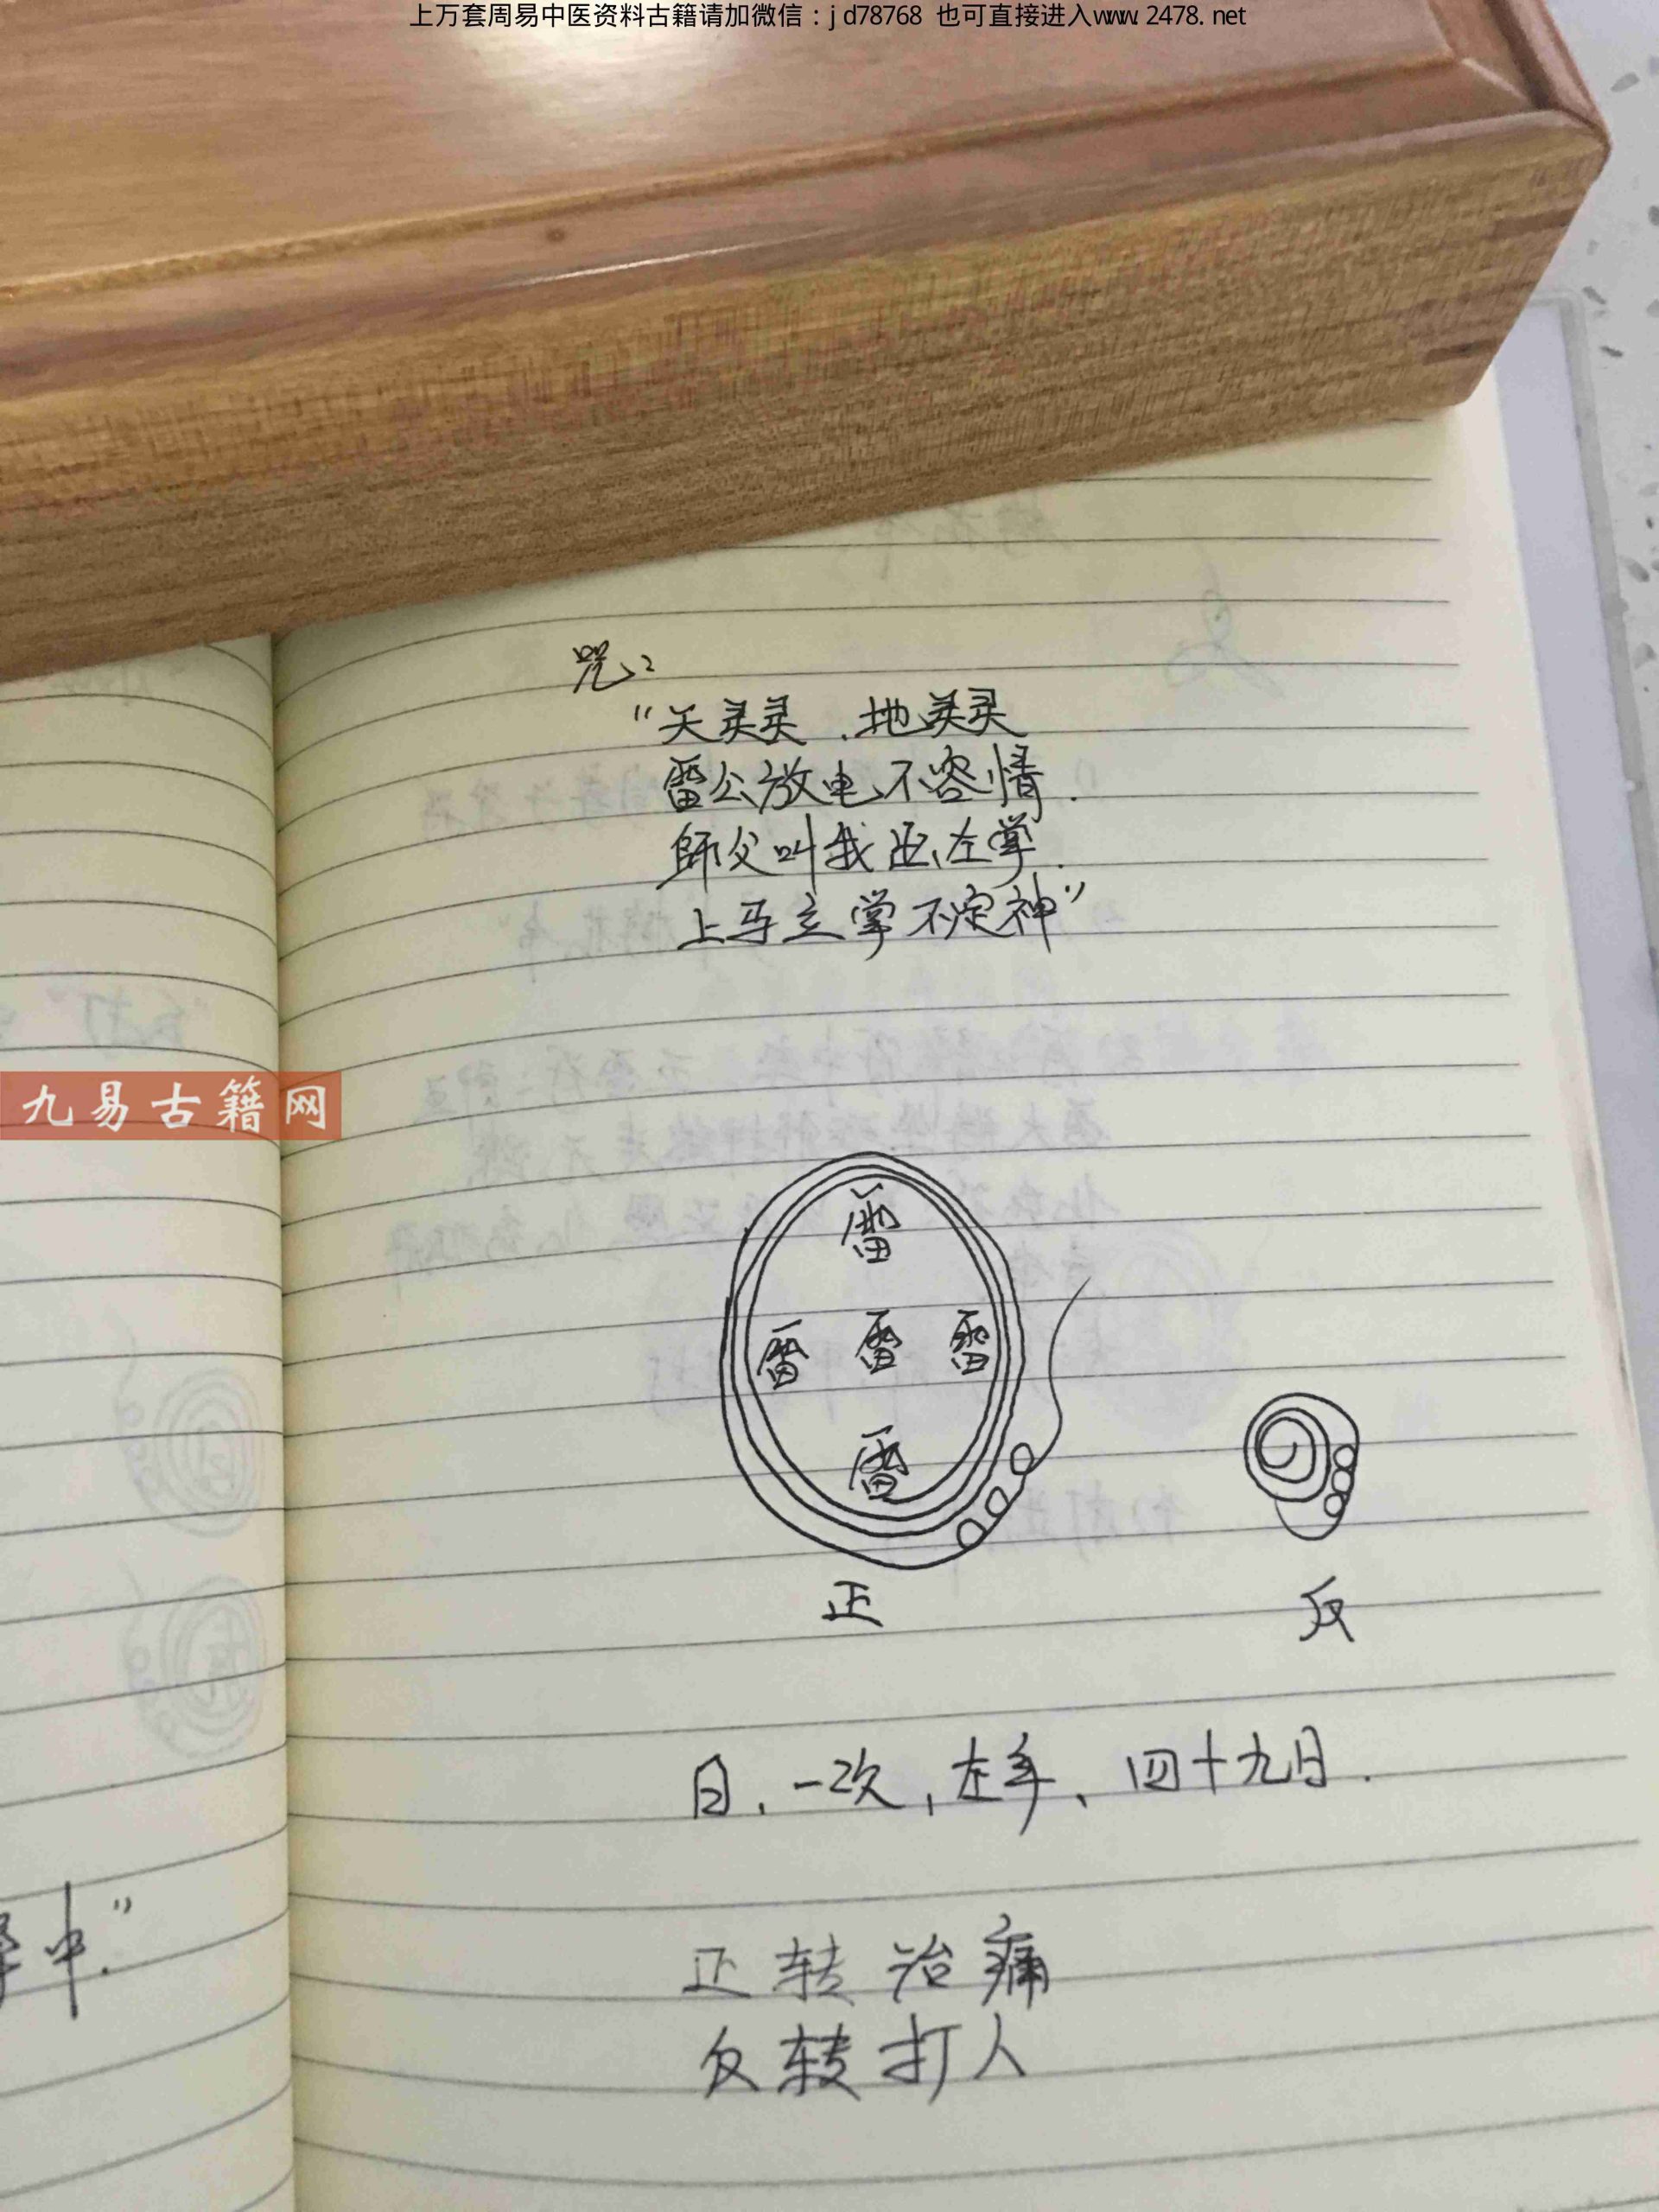 上万套周易中医资料古籍请加微信：jd78768 也可直接进入www.2478.net
咒：
“天灵灵．地灵灵
雷公放电不容情．
師父叫我 左掌．
上马立掌不定神”
九易古籍网
雷
雷 雷 雷
雷
正
反
日．一次，左手、四十九日．
中.”
正转治痛
反转打人